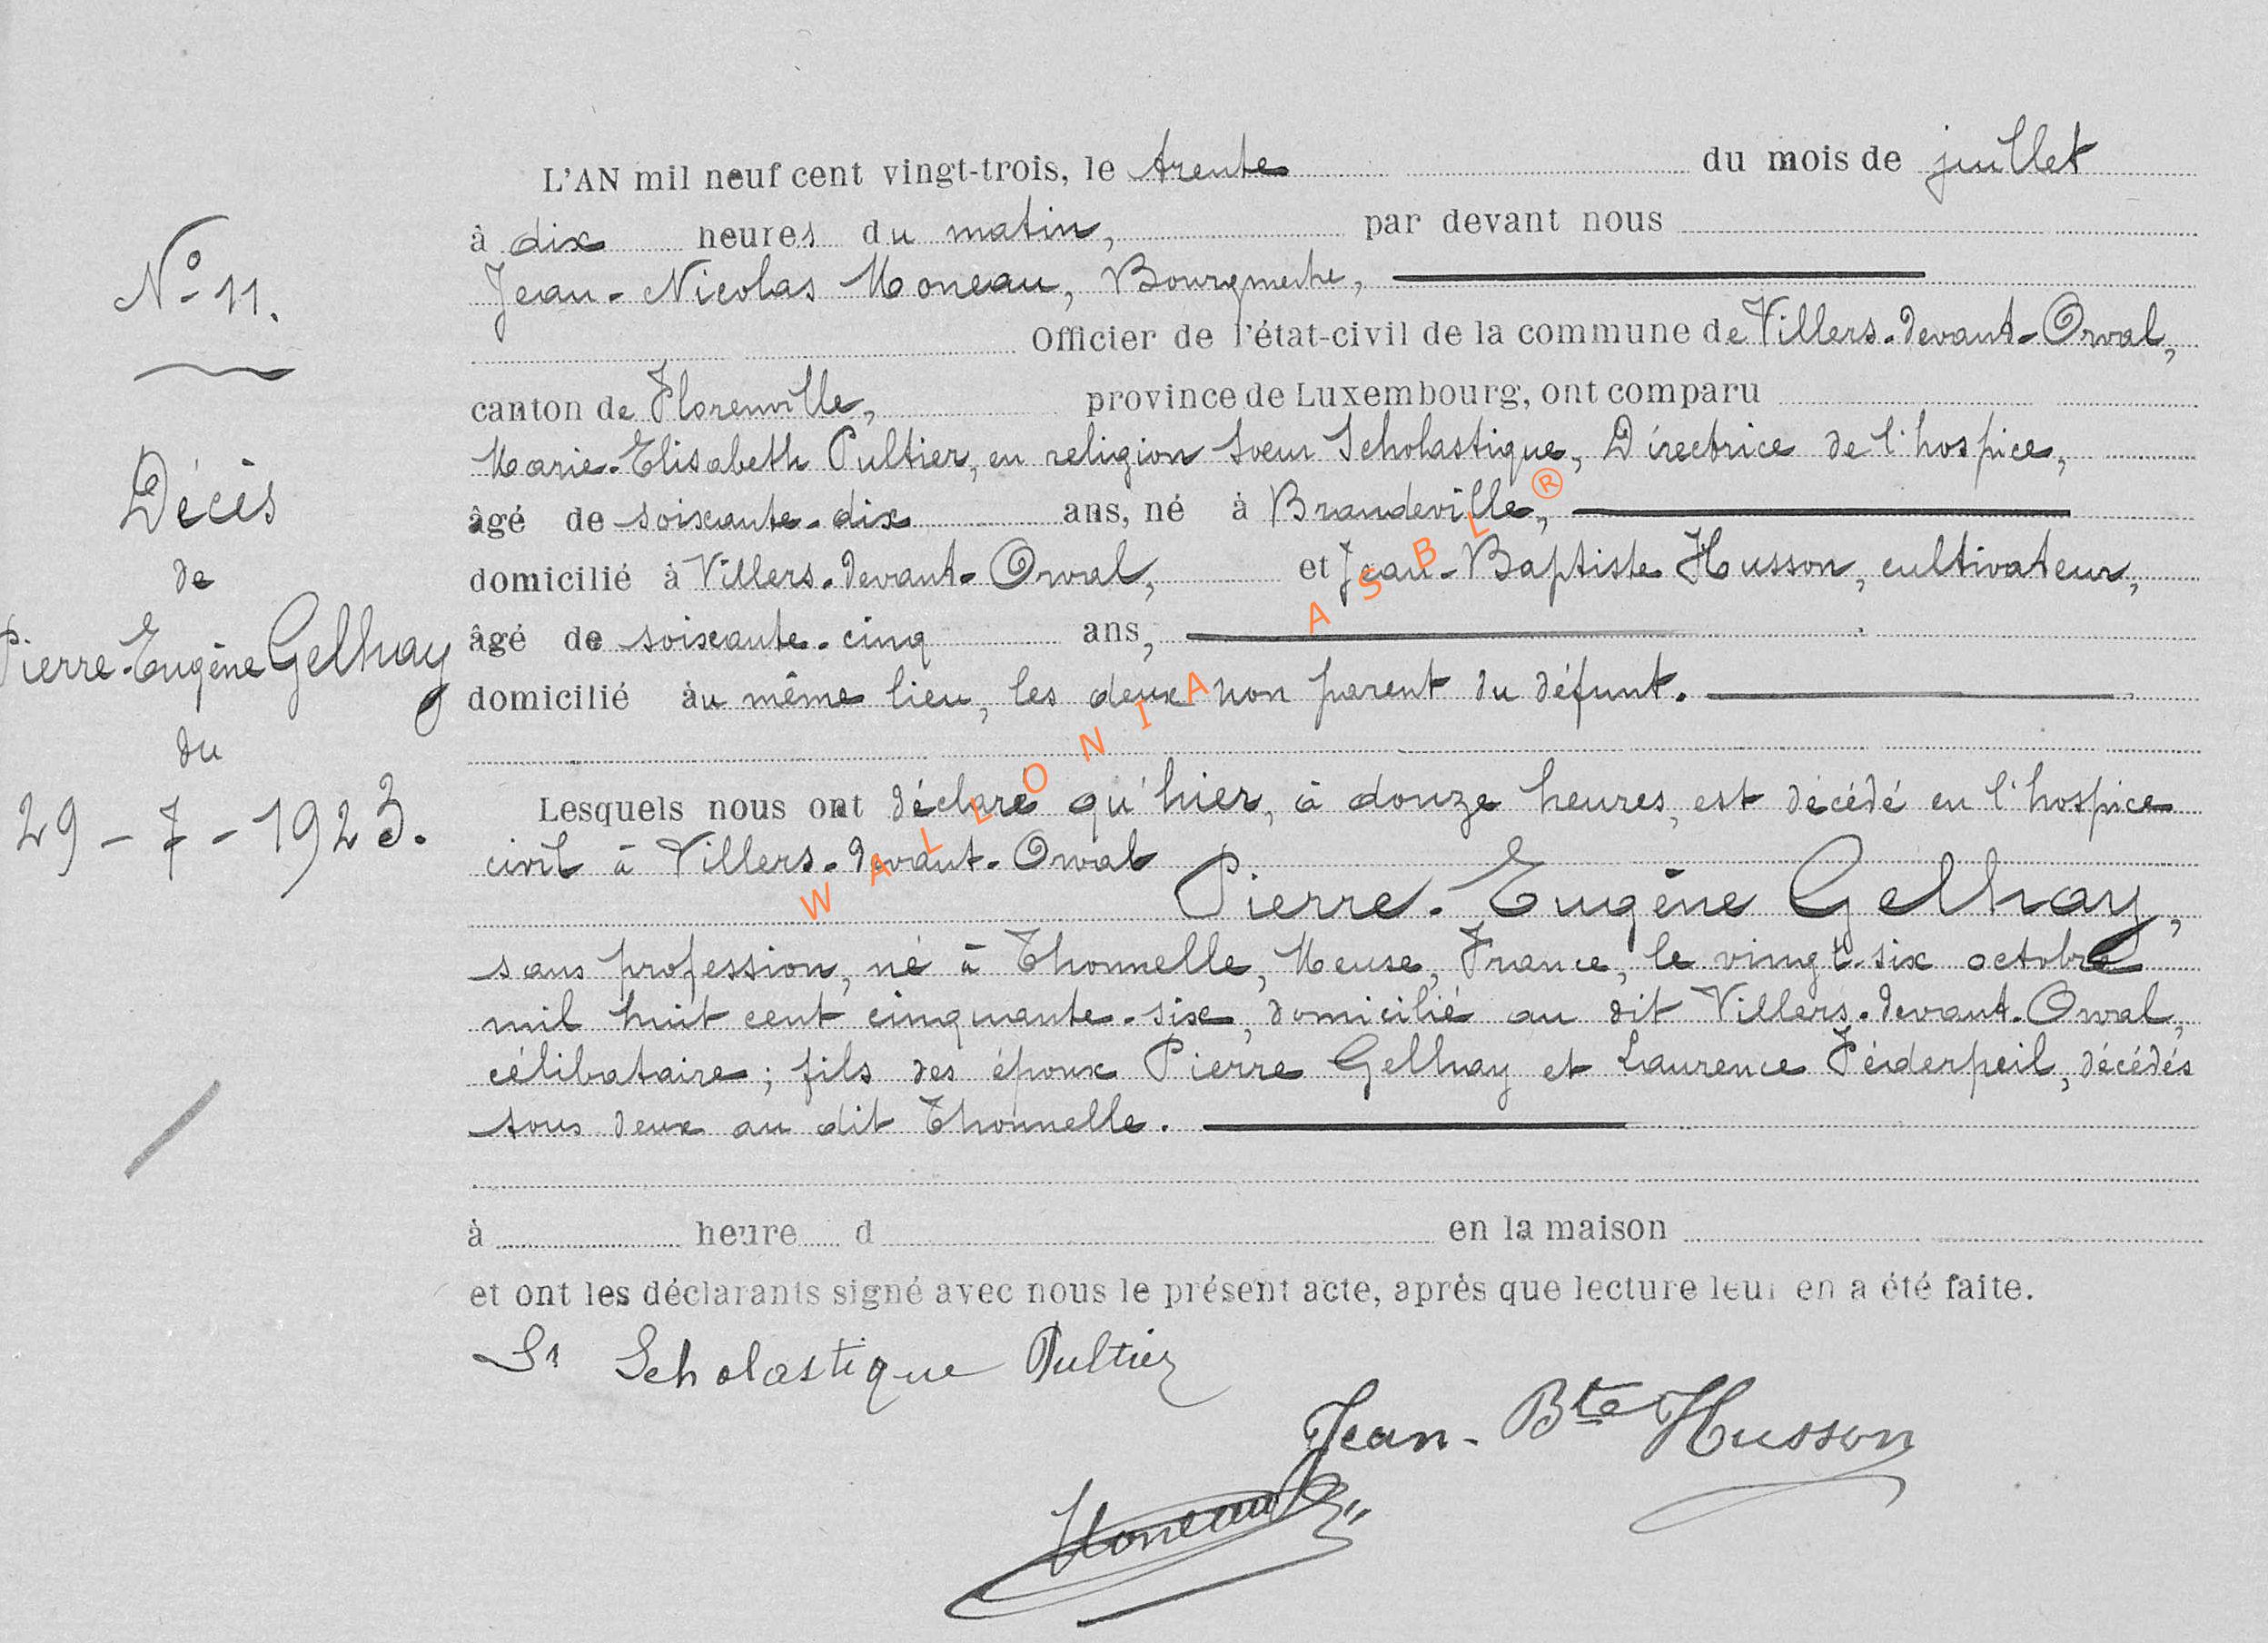 L'AN mil neuf cent vingt-trois, le trente du mois de juillet
à dix heures du matin, par devant nous
Jean-Nicolas Moneau, Bourgmestre,
Officier de l'état-civil de la commune de Villers-devant-Orval,
canton de Florenville, province de Luxembourg, ont comparu
Marie-Elisabeth Pultier, en religion Soeur Scholastique, Directrice de l'hospice,
âgé de soixante-dix ans, né à Brandeville,
domicilié à Villers-devant-Orval, et Jean-Baptiste Husson, cultivateur,
âgé de soixante-cinq ans,
domicilié au même lieu, les deux non parent du défunt.
Lesquels nous ont déclaré qu'hier, à douze heures, est décédé en l'hospice
civil à Villers-devant-Orval
Pierre-Eugène Gelhay,
sans profession, né à Thonnelle, Meuse, France, le vingt-six octobre
mil huit cent cinquante-six, domicilié au dit Villers-devant-Orval,
célibataire; fils des époux Pierre Gelhay et Laurence Féiderpeil, décédés
tous deux au dit Thonnelle.
à heure d en la maison
et ont les déclarants signé avec nous le présent acte, après que lecture leur en a été faite.
Sr Scholastique Pultier
Jean-Bte Husson
Moneau
No 11.
Décès
de
Pierre-Eugène Gelhay
du
29-7-1923.
WALLONIA ASBL ®